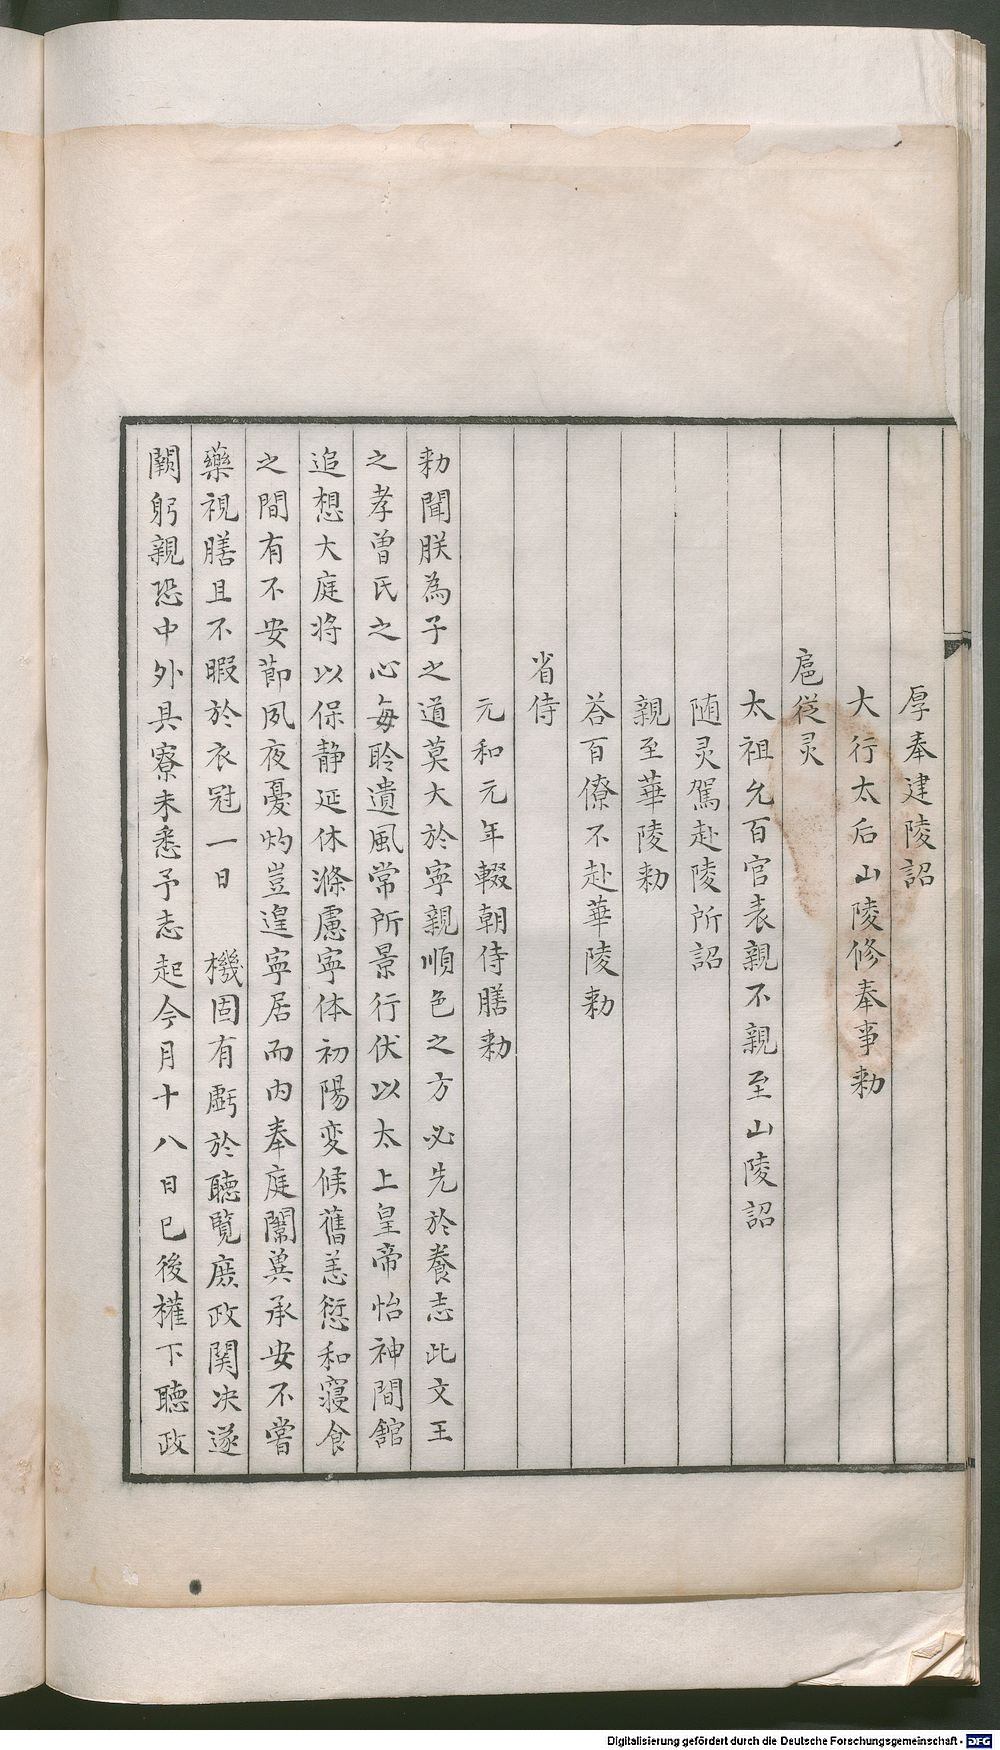 厚奉建陵詔
大行太后山陵修奉事勅
扈従灵
太祖允百官表親不親至山陵詔
随灵駕赴陵所詔
親至華陵勅
荅百僚不赴華陵勅
省侍
元和元年輟朝侍膳勅
勅聞朕為子之道莫大於寧親順色之方必先於養志此文王
之孝曽氏之心每聆遺風常所景行伏以太上皇帝怡神間舘
追想大庭将以保静延休滌慮寧体初陽変候舊恙愆和寝食
之間有不安節夙夜憂灼豈遑寧居而内奉庭闈兾承安不嘗
藥視膳且不暇於衣冠一日 機固有虧於聴覧庶政関决遂
闕躬親恐中外具寮未悉予志起今月十八日已後権下聴政
Digitalisierung gefördert durch die Deutsche Forschungsgemeinschaft - DFG